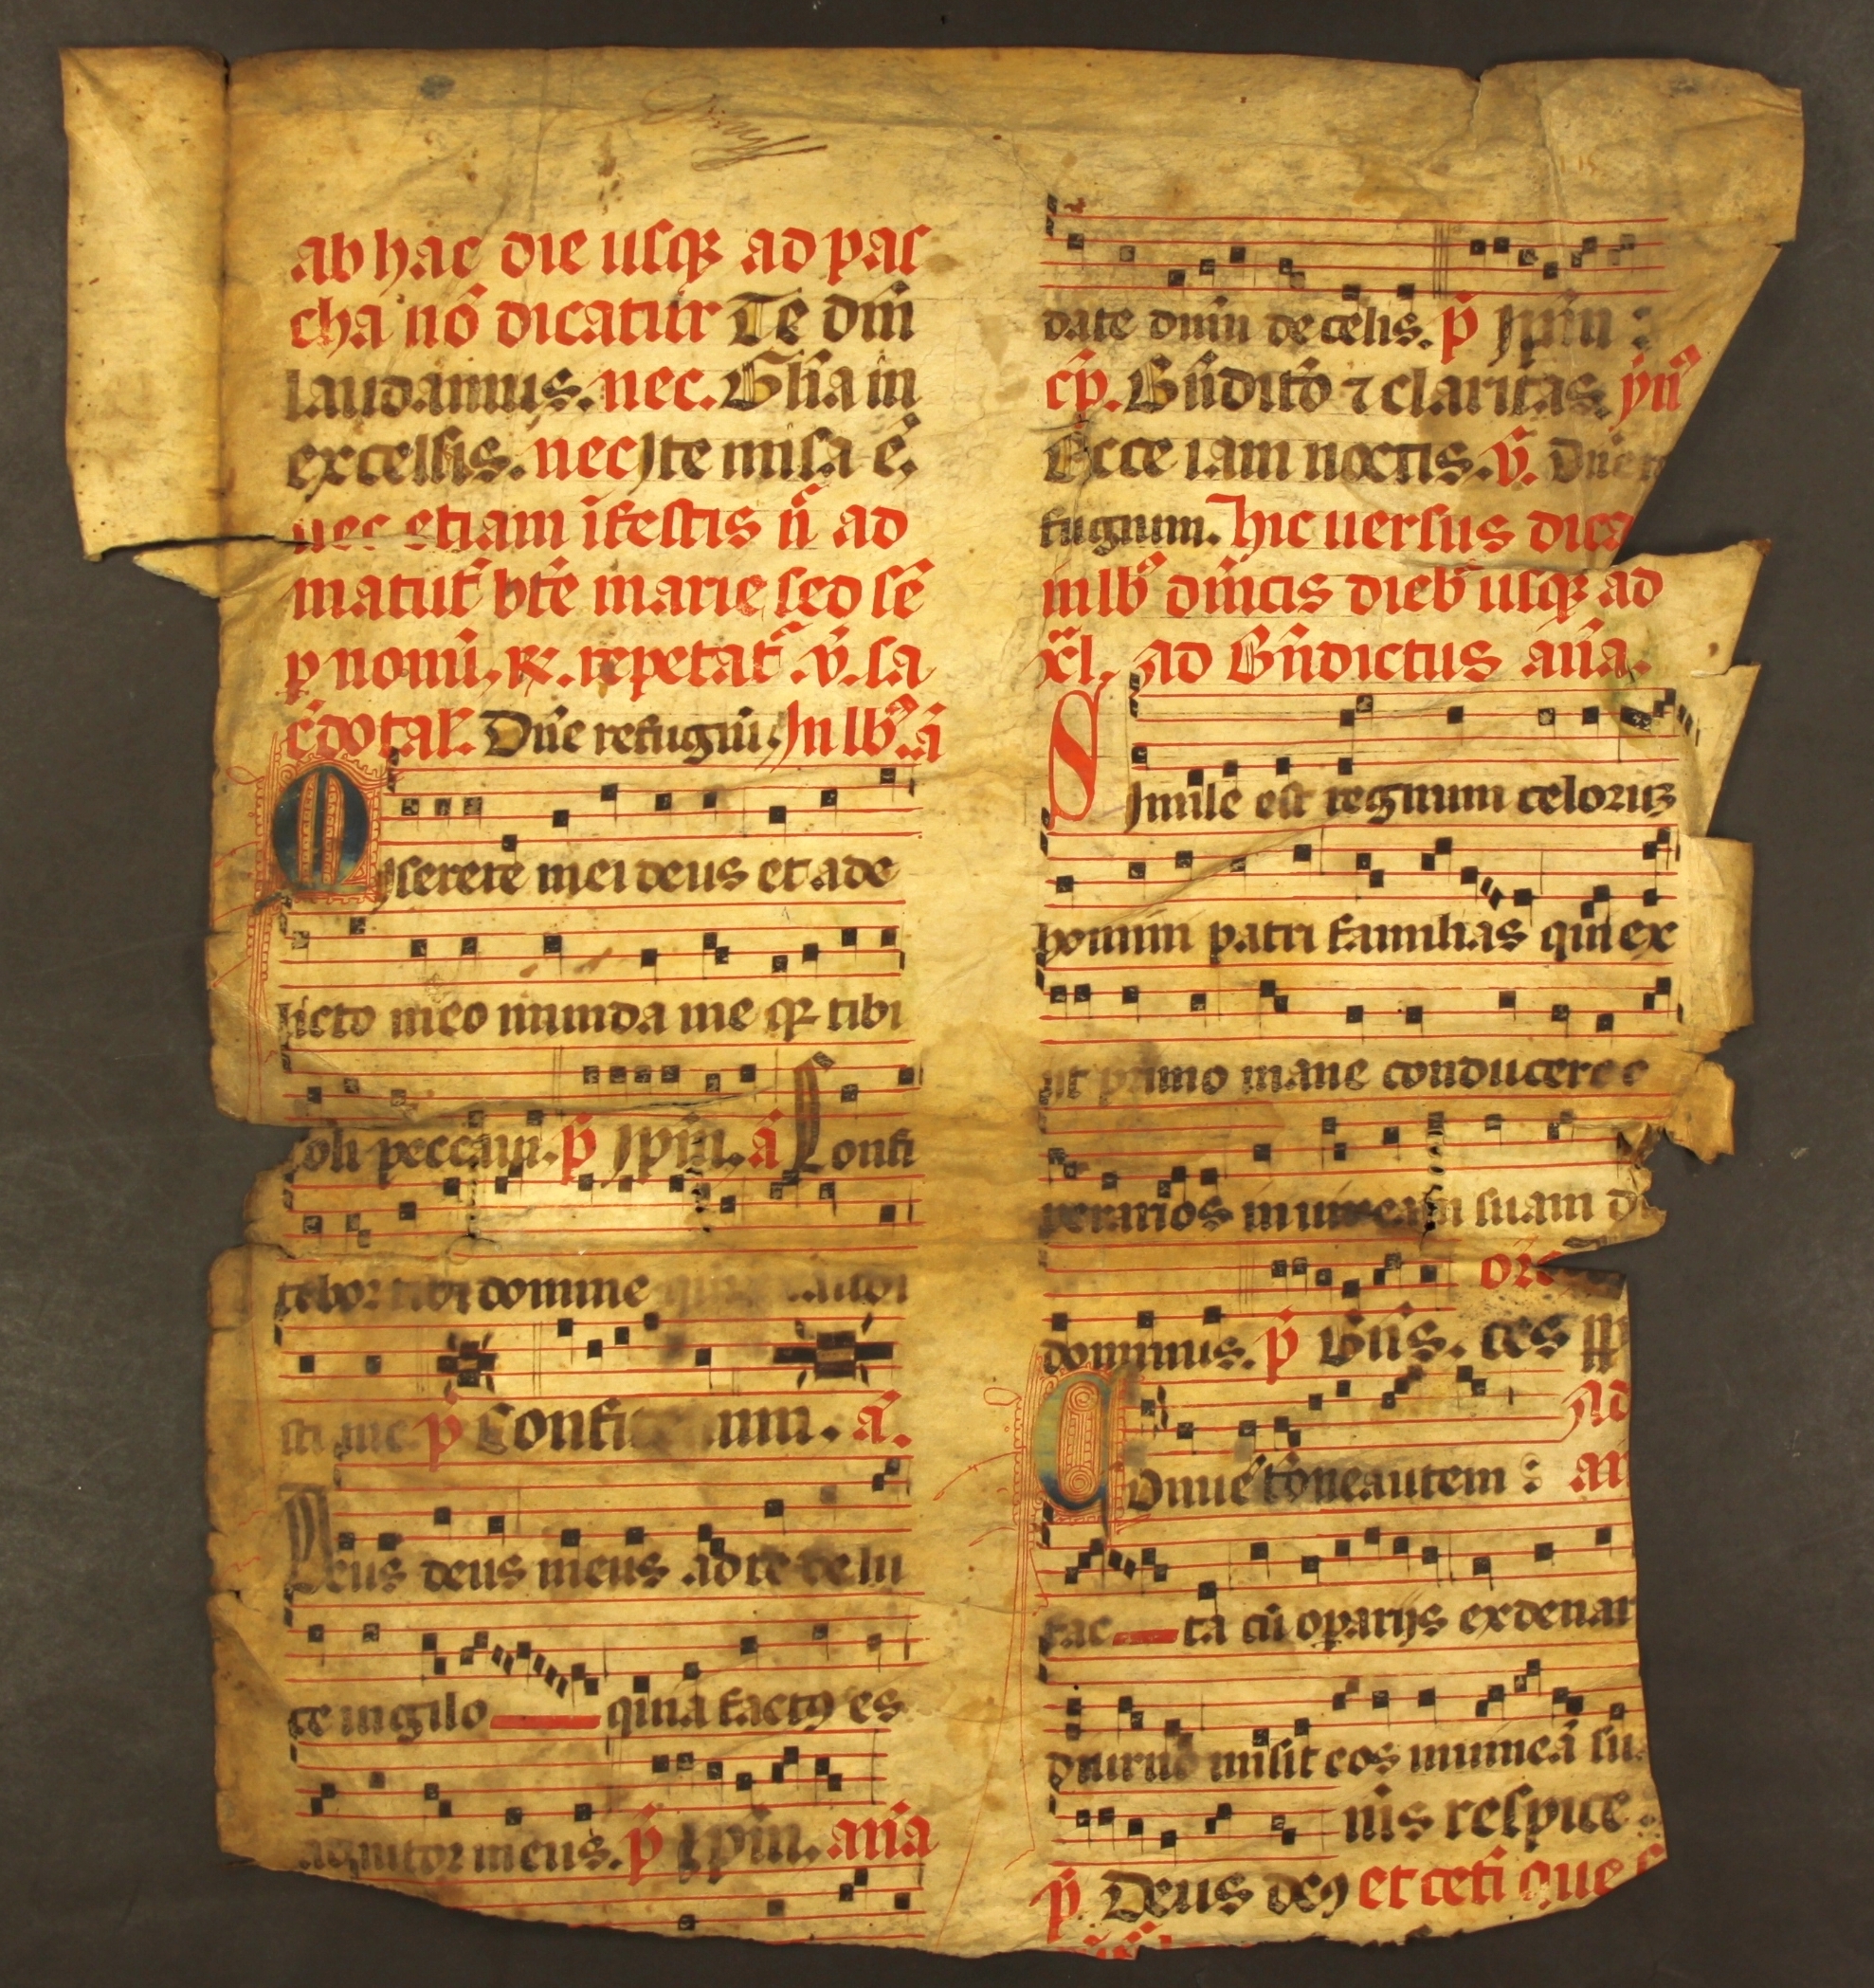 ab hac die usqꝫ ad pas
cha nō dicatur Te dm̄
laudamus. nec. Gl̄ia in
excelsis. nec Ite misa ē.
nec etiam ī festis n̄ ad
matut̄ btē marie sed sē
p nonū. ℟. repetat᷑ .v̄. sa
c̄dotal̄. Dn̄e refugiū. In lb᷒ .ā
Miserere mei deus et a de
licto meo munda me qꝫ tibi
soli peccaui. p̄ Ipm̄. ā Confi
tebor tibi domine
sti me. p̄ Confit. ā.
Deus deus meus ad te de lu
ce uigilo quia factꝯ es
adiutor meus. p̄ Ipm̄. an̄a
date dn̄m de celis. p̄ Ipm̄ :
cp̄. Bn̄dictō ⁊ claritas. ẏn̄
Ecce iam noctis. v̄. Dn̄e re
fugium. Hic uersus dica
in lb᷒ dn̄icis dieb᷒ usqꝫ ad
xl. ad Bn̄dictus an̄a.
Simile est regnum celoruꝫ
homini patri familias qui ex
iit primo mane conducere o
perarios in uineam suam di
dominus. p̄ Bn̄s. ces
orē
Ad
Conuētione autem : an
fac ta cū oparijs ex denar
diurno misit eos in uineā su
nis respice :
p̄ Deus deꝯ et cet̄i que s